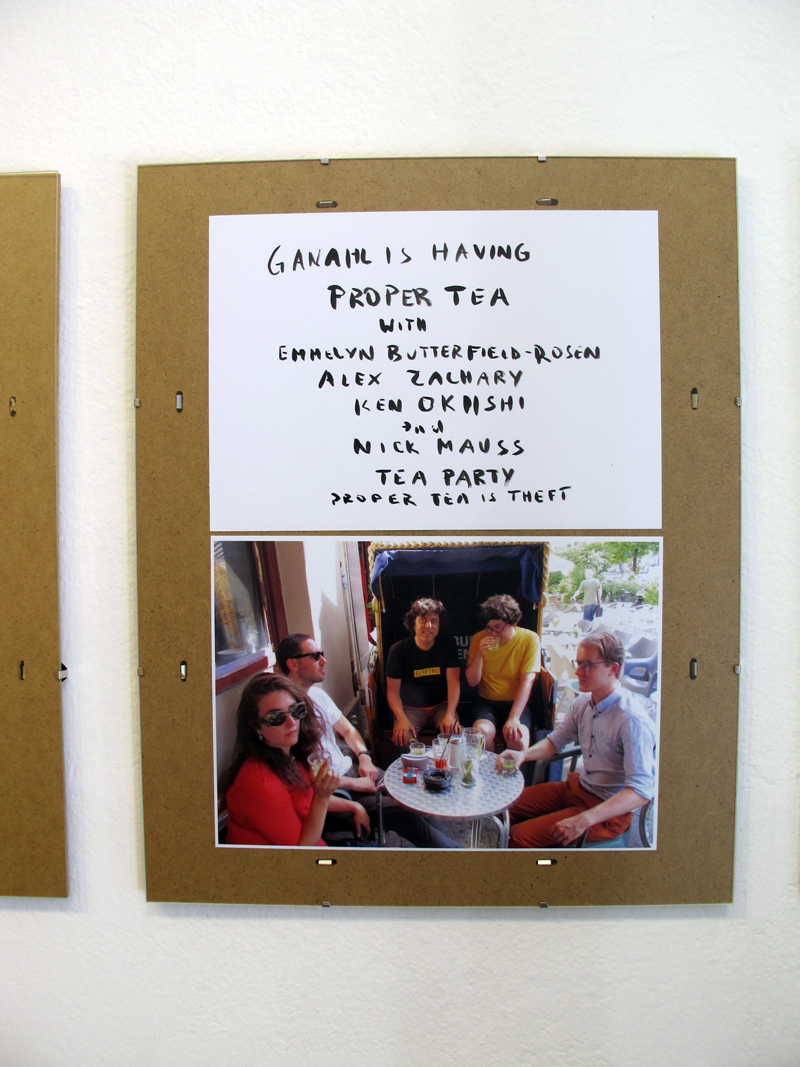 GANAHL IS HAVING
PROPER TEA
WITH
EMMELYN BUTTERFIELD-ROSEN
ALEX ZACHARY
KEN OKIISHI
and
NICK MAUSS
TEA PARTY
PROPER TEA IS THEFT